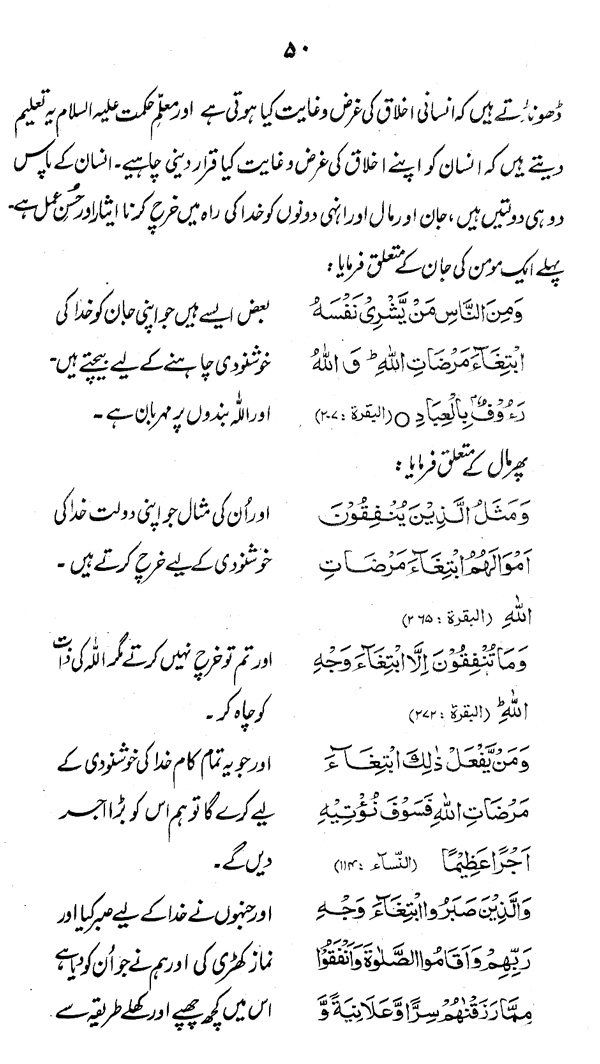 ۵۰
ڈھونڈتے ہیں کہ انسانی اخلاق کی غرض و غایت کیا ہوتی ہے اور معلّمِ حکمت علیہ السلام یہ تعلیم
دیتے ہیں کہ انسان کو اپنے اخلاق کی غرض و غایت کیا قرار دینی چاہیے۔ انسان کے پاس
دو ہی دولتیں ہیں، جان اور مال اور انہی دونوں کو خدا کی راہ میں خرچ کرنا ایثار اور حُسنِ عمل ہے۔
پہلے ایک مومن کی جان کے متعلق فرمایا:
وَمِنَ النَّاسِ مَنْ يَّشْرِىْ نَفْسَهُ بعض ایسے ہیں جو اپنی جان کو خدا کی
ابْتِغَآءَ مَرْضَاتِ اللهِ ؕ وَ اللهُ خوشنودی چاہنے کے لیے بیچتے ہیں۔
رَءُوْفٌۢ بِالْعِبَادِ ○ (البقرة : ۲۰۷) اور اللہ بندوں پر مہربان ہے۔
پھر مال کے متعلق فرمایا:
وَمَثَلُ الَّذِيْنَ يُنْفِقُوْنَ اور اُن کی مثال جو اپنی دولت خدا کی
اَمْوَالَهُمُ ابْتِغَآءَ مَرْضَاتِ خوشنودی کے لیے خرچ کرتے ہیں۔
اللهِ (البقرة : ۲۶۵)
وَمَا تُنْفِقُوْنَ اِلَّا ابْتِغَآءَ وَجْهِ اور تم تو خرچ نہیں کرتے مگر اللہ کی ذات
اللهِ ؕ (البقرة : ۲۷۲) کو چاہ کر۔
وَمَنْ يَّفْعَلْ ذٰلِكَ ابْتِغَآءَ اور جو یہ تمام کام خدا کی خوشنودی کے
مَرْضَاتِ اللهِ فَسَوْفَ نُؤْتِيْهِ لیے کرے گا تو ہم اس کو بڑا اجر
اَجْرًا عَظِيْمًا (النّسآء : ۱۱۴) دیں گے۔
وَالَّذِيْنَ صَبَرُوا ابْتِغَآءَ وَجْهِ اور جنہوں نے خدا کے لیے صبر کیا اور
رَبِّهِمْ وَاَقَامُوا الصَّلٰوةَ وَاَنْفَقُوْا نماز کھڑی کی اور ہم نے جو اُن کو دیا ہے
مِمَّا رَزَقْنٰهُمْ سِرًّا وَّعَلَانِيَةً وَّ اس میں کچھ چھپے اور کھلے طریقہ سے